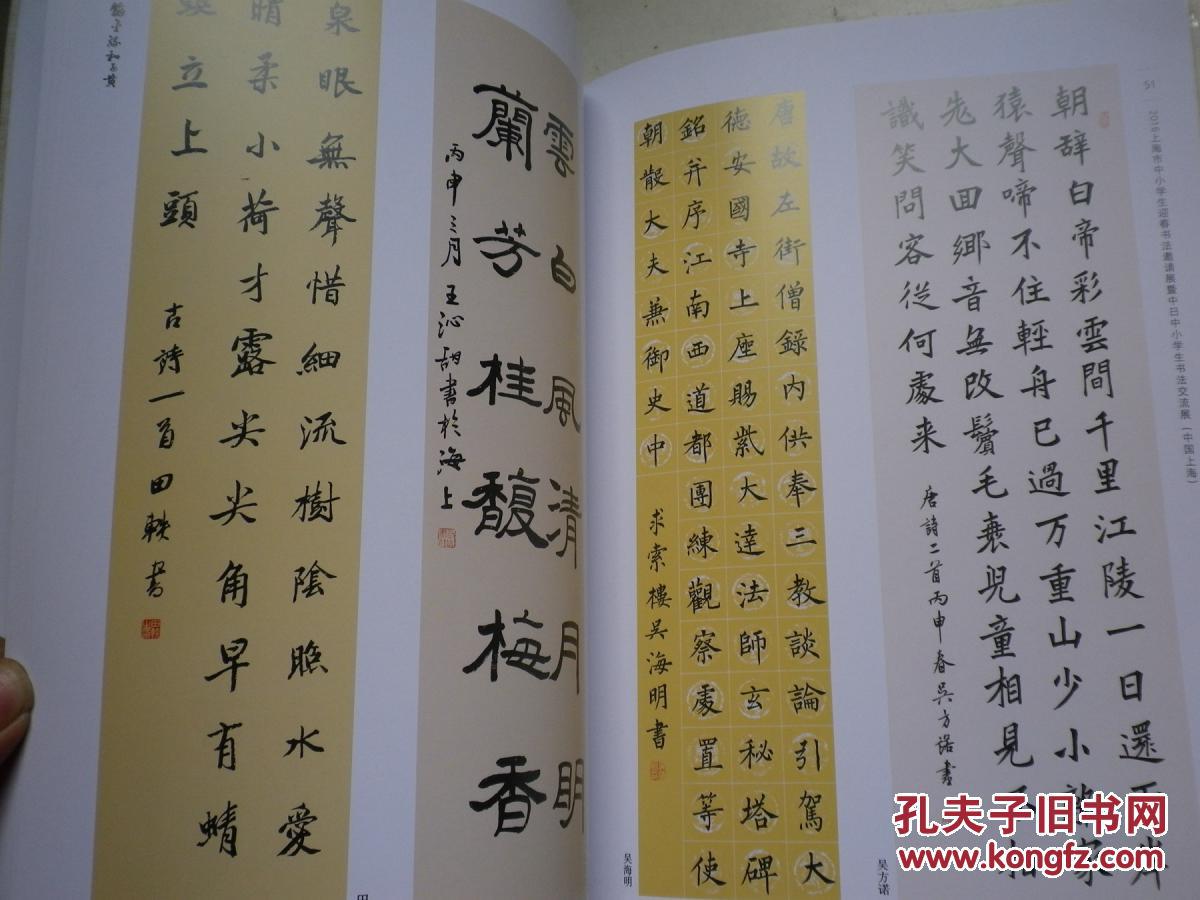 泉眼無聲惜細流樹陰照水愛
晴柔小荷才露尖尖角早有蜻
立上頭
古詩一首田軼書
田
雲白風清月明
蘭芳桂馥梅香
丙申三月王沁甜書於海上
51
2016上海市中小学生迎春书法邀请展暨中日中小学生书法交流展（中国上海）
朝辞白帝彩雲間千里江陵一日還两岸
猿聲啼不住輕舟已過万重山少小離家
老大回鄉音無改鬢毛衰兒童相見不相
識笑問客從何處来
唐詩二首丙申春吴方諾書
吴方诺
唐故左街僧錄内供奉三教談論引駕大
德安國寺上座賜紫大達法師玄秘塔碑
銘并序江南西道都團練觀察處置等使
朝散大夫兼御史中
求索樓吴海明書
吴海明
孔夫子旧书网
www.kongfz.com